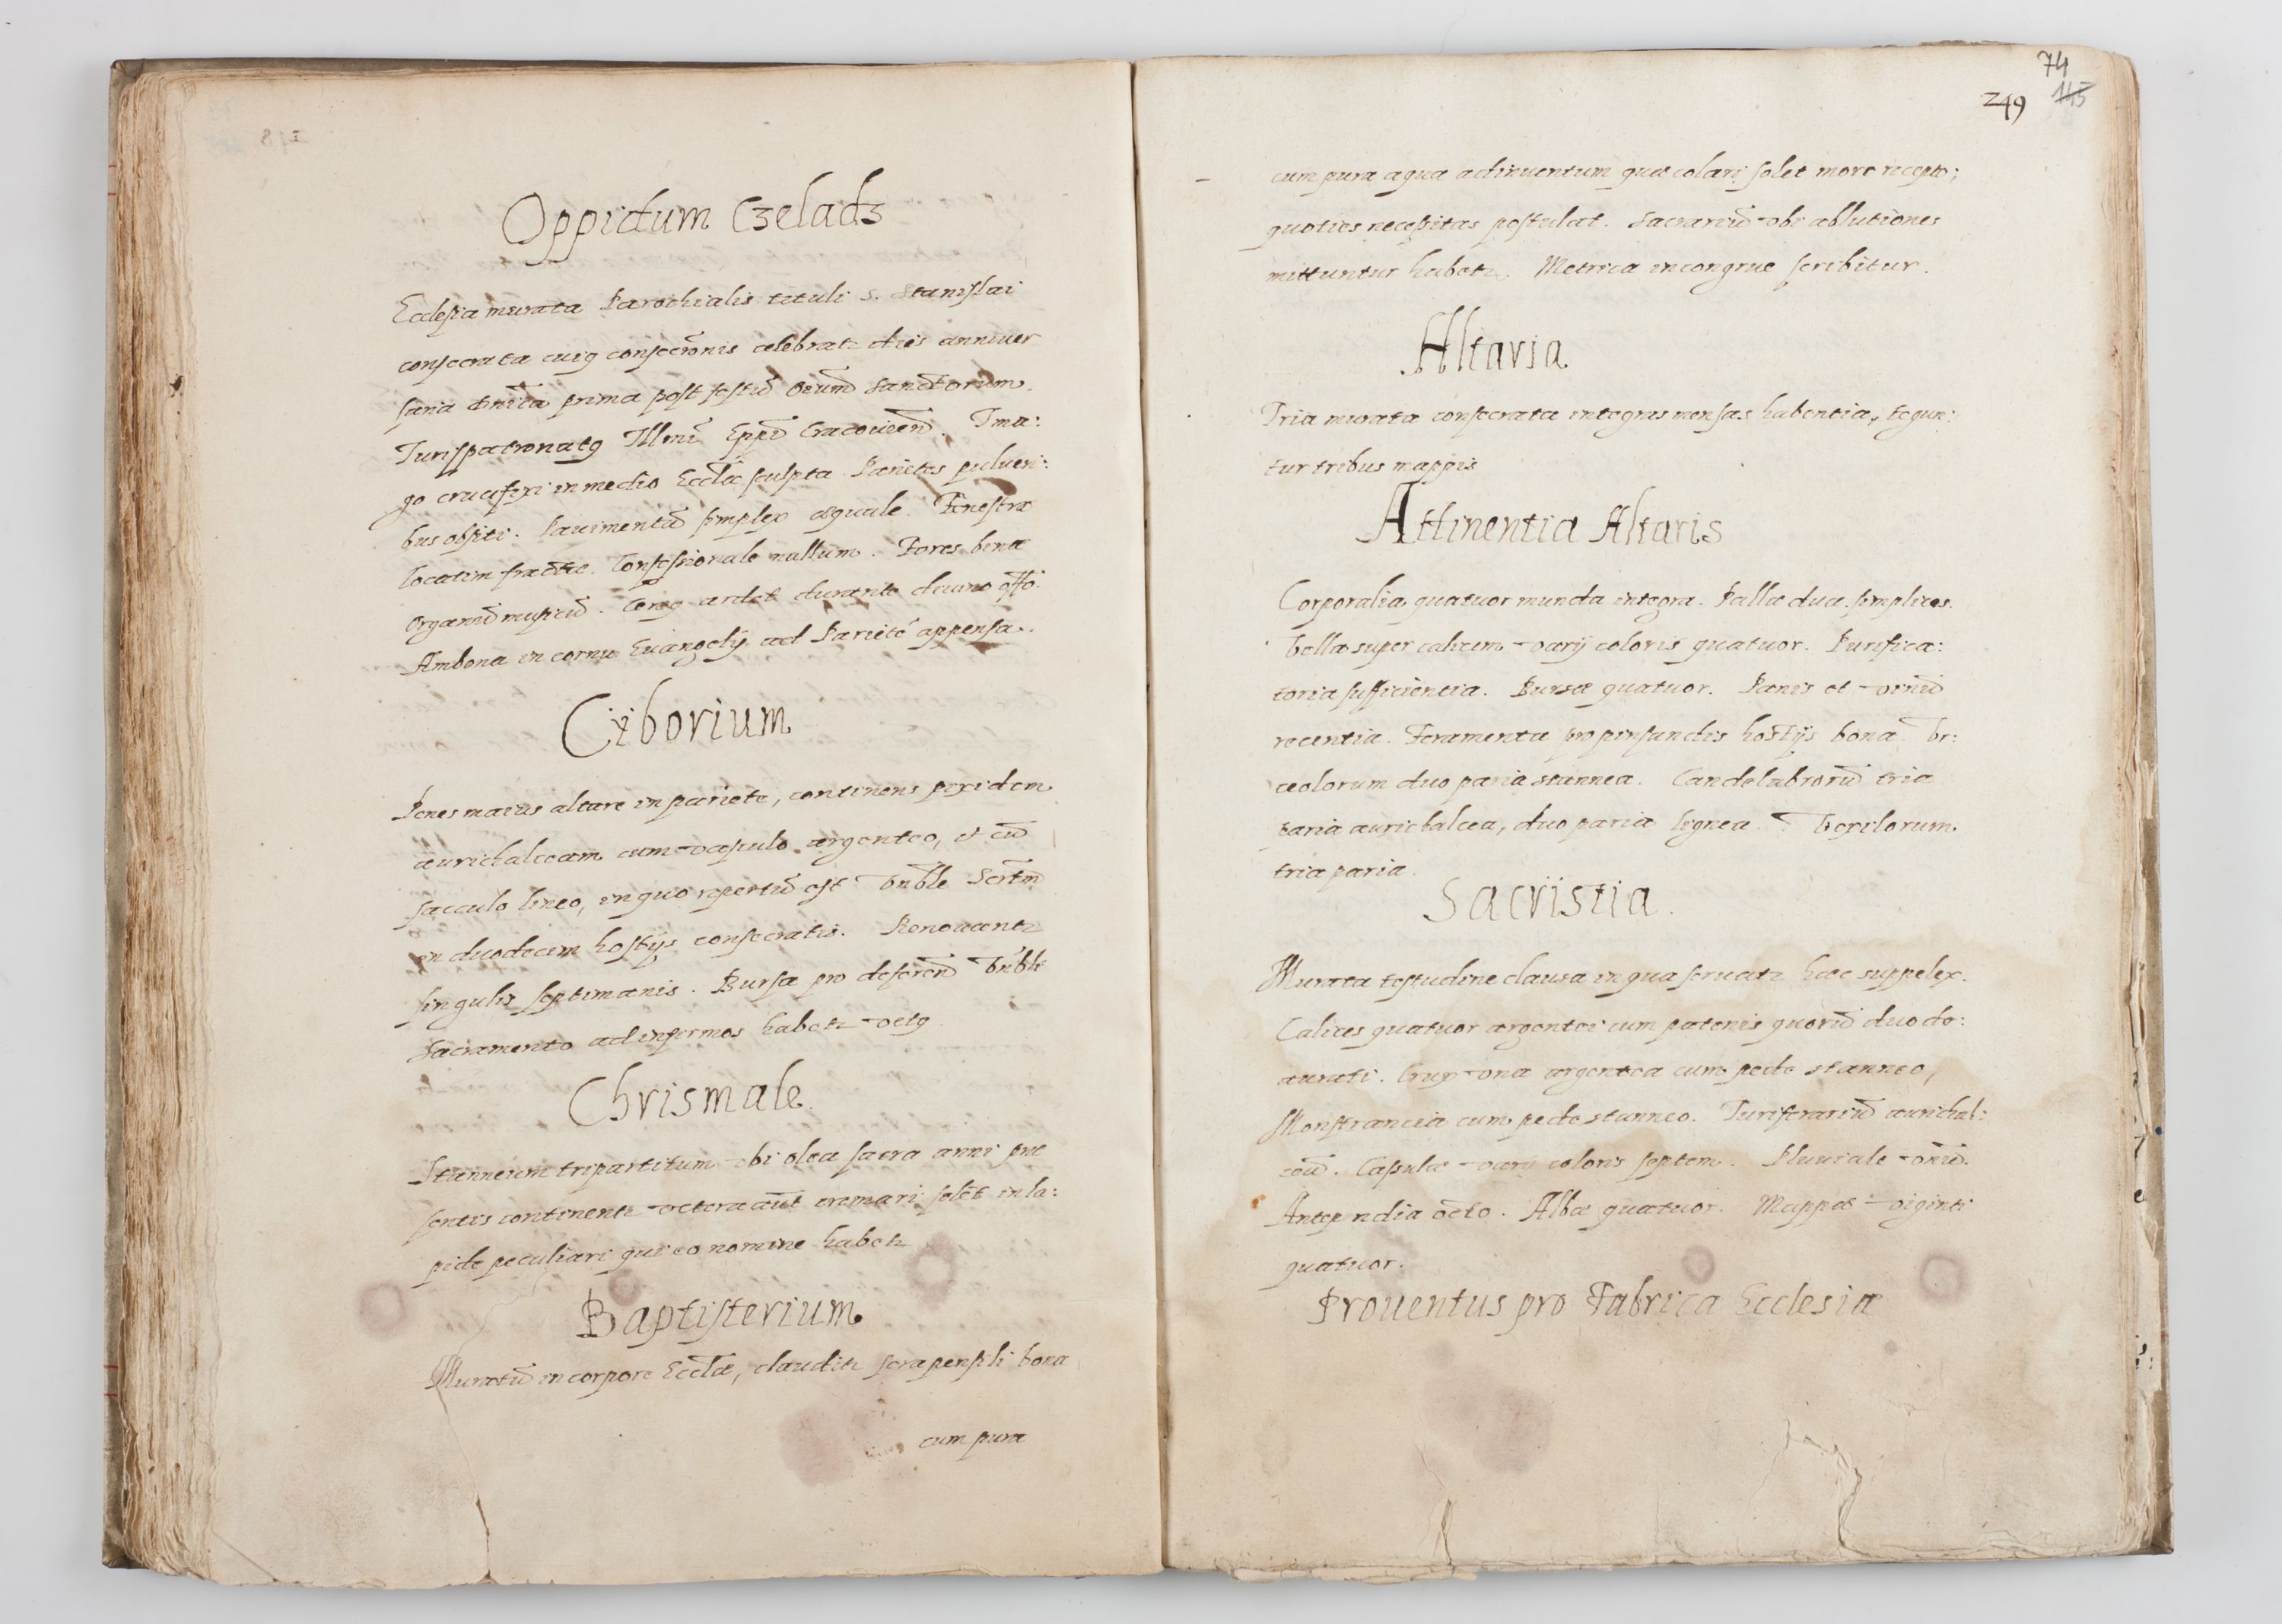 Oppidum Czeladz
Ecclesia murata Parochialis tituli S. Stanislai
consecrata cuiq consecrōnis celebratz dies anniuer
saria dnica prima post festū Oīum Sanctorum.
Iurispatronatq Illmi Eppi Cracouien. Ima:
go crucifixi in medio Eccłæ sculpta. Parietes pulueri:
bus obsiti. Pauimentū simplex æquale. Fenestræ
locatim fractæ. Confessionale nullum. Fores binæ
Organū musicū. Cereq ardet durante diuino offō.
Ambona in cornu Euangelij ad Parietē appensa.
Ciborium
Penes maius altare in pariete, continens pixidem
aurichalceam cum vasculo argenteo, et cū
sacculo lineo, in quo repertū est Vnble Scrtm
in duodecim hostijs consecratis. Renouantz
singulis septimanis. Bursa pro deferen Vnbli
Sacramento ad infirmos habetz vetq
Chrismale
Stanneum tripartitum vbi olea sacra anni præ
sentis continentz vetera aūt cremari solēt in la:
pide peculiari qui eo nomine habetz
Baptisterium
Muratū in corpore Eccłæ, clauditz sera pensili bona
cum pura
74
249 145
cum pura aqua adinuentum quæ colari solet more recepto;
quoties necessitas postulat. Sacrariū vbi ablutiones
mittuntur habetz. Metrica incongrue scribitur.
Altaria
Tria murata consecrata integras mensas habentia, tegun:
tur tribus mappis
Attinentia Altaris
Corporalia quatuor munda integra. Pallæ duæ simplices.
Vella super calicem varij coloris quatuor. Purifica:
toria sufficientia. Bursæ quatuor. Panis et vinū
recentia. Feramenta pro pinsandis hostijs bona. Vr:
ceolorum duo paria stannea. Candelabrorū tria
paria aurichalcea, duo paria lignea. Vexilorum
tria paria.
Sacristia
Murata testudine clausa in qua seruatz hæc suppelex.
Calices quatuor argentei cum patenis quorū duo de:
aurati. Crux vna argentea cum pede stanneo,
Monstrancia cum pede stanneo. Turiferariū aurichal:
ceū. Casulæ varij coloris septem. Pluuiale vnū.
Antependia octo. Albæ quatuor. Mappæ viginti
quatuor.
Prouentus pro Fabrica Ecclesiæ